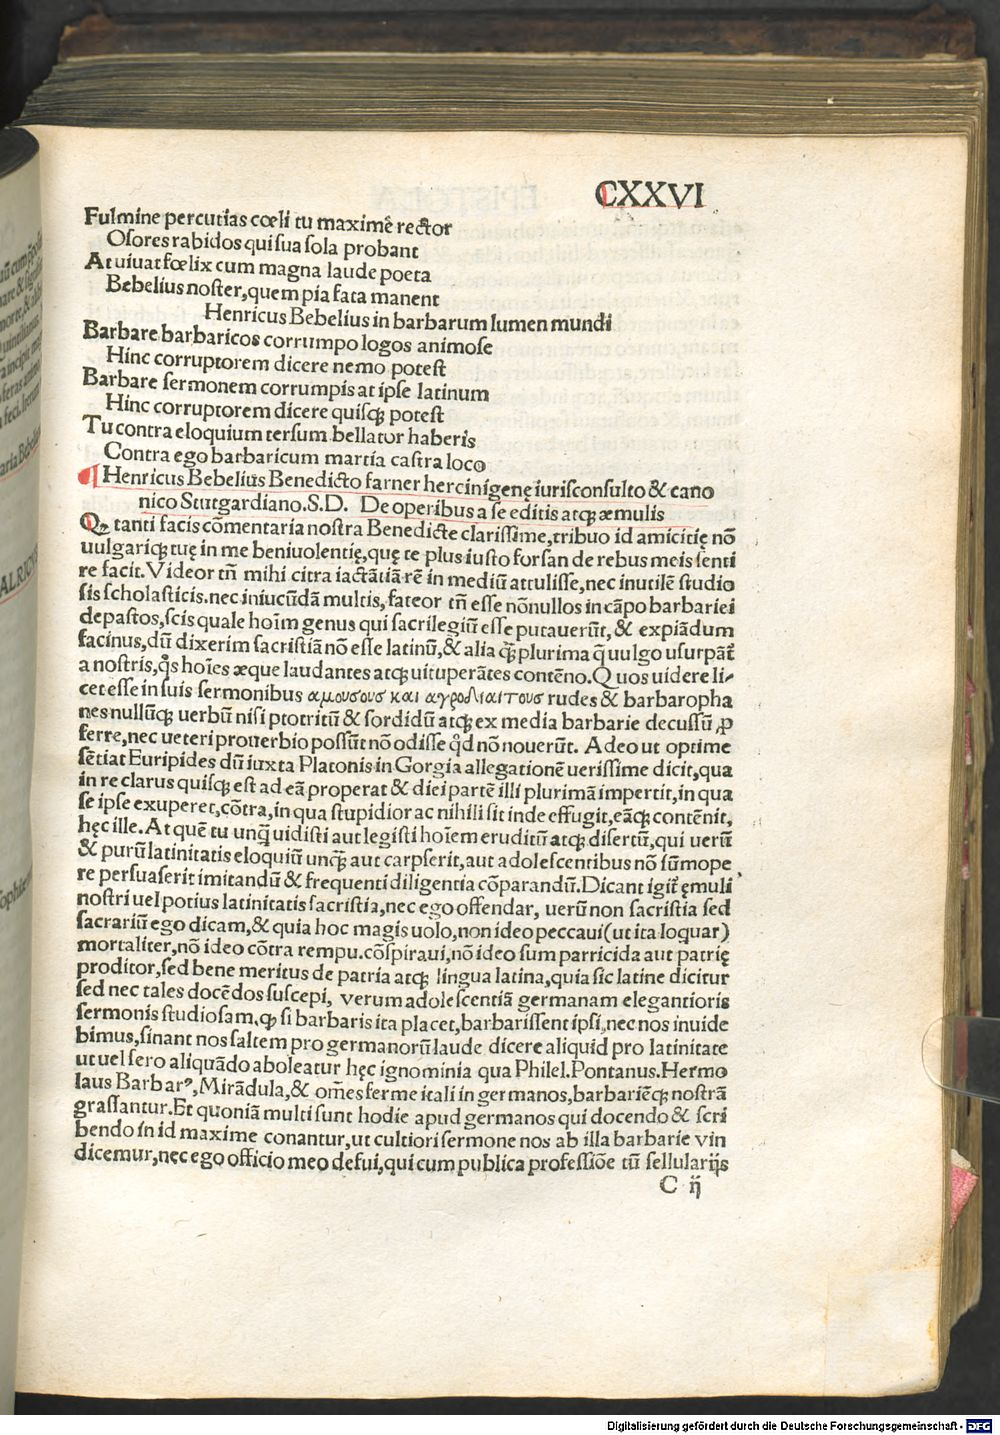 CXXVI
Fulmine percutias cœli tu maximè rector
Osores rabidos qui sua sola probant
At uiuat fœlix cum magna laude poeta
Bebelius noster, quem pia fata manent
Henricus Bebelius in barbarum lumen mundi
Barbare barbaricos corrumpo logos animose
Hinc corruptorem dicere nemo potest
Barbare sermonem corrumpis at ipse latinum
Hinc corruptorem dicere quisqꝫ potest
Tu contra eloquium tersum bellator haberis
Contra ego barbaricum martia castra loco
¶ Henricus Bebelius Benedicto farner hercinigenę iurisconsulto & cano
nico Stutgardiano.S.D. De operibus a se editis atqꝫ æmulis
Qꝫ tanti facis cõmentaria nostra Benedicte clarissime, tribuo id amicitię nõ
uulgariqꝫ tuę in me beniuolentię, quę te plus iusto forsan de rebus meis senti
re facit. Videor tñ mihi citra iactãtiã rẽ in mediũ attulisse, nec inutilẽ studio
sis scholasticis. nec iniucũdã multis, fateor tñ esse nõnullos in cãpo barbariei
depastos, scis quale hoĩm genus qui sacrilegiũ esse putauerũt, & expiãdum
facinus, dũ dixerim sacristiã nõ esse latinũ, & alia qꝫplurima q̃ uulgo usurpãt̃
a nostris, q̃s hoĩes æque laudantes atqꝫ uituperãtes contẽno. Quos uidere li-
cet esse in suis sermonibus αμουσους και αγροδιαιτους rudes & barbaropha
nes nullũqꝫ uerbũ nisi ptotritũ & sordidũ atqꝫ ex media barbarie decussũ ꝓ
ferre, nec ueteri prouerbio possũt nõ odisse q̃d nõ nouerũt. Adeo ut optime
sẽtiat Euripides dũ iuxta Platonis in Gorgia allegationẽ uerissime dicit, qua
in re clarus quisqꝫ est ad eã properat & diei partẽ illi plurimã impertit, in qua
se ipse exuperet, cõtra, in qua stupidior ac nihili sit inde effugit, eãqꝫ contẽnit,
hęc ille. At quẽ tu unq̃ uidisti aut legisti hoĩem eruditũ atqꝫ disertũ, qui uerũ
& purũ latinitatis eloquiũ unqꝫ aut carpserit, aut adolescentibus nõ sũmope
re persuaserit imitandũ & frequenti diligentia cõparandũ. Dicant igit̃ ęmuli
nostri uel potius latinitatis sacristia, nec ego offendar, uerũ non sacristia sed
sacrariũ ego dicam, & quia hoc magis uolo, non ideo peccaui (ut ita loquar)
mortaliter, nõ ideo cõtra rempu. cõspiraui, nõ ideo sum parricida aut patrię
proditor, sed bene meritus de patria atqꝫ lingua latina, quia sic latine dicitur
sed nec tales docẽdos suscepi, verum adolescentiã germanam elegantioris
sermonis studiosam, ꝙ si barbaris ita placet, barbarissent ipsi, nec nos inuide
bimus, sinant nos saltem pro germanorũ laude dicere aliquid pro latinitate
ut uel sero aliquãdo aboleatur hęc ignominia qua Philel. Pontanus. Hermo
laus Barbarꝰ, Mirãdula, & om̃es ferme itali in germanos, barbariẽqꝫ nostrã
grassantur. Et quoniã multi sunt hodie apud germanos qui docendo & scri
bendo in id maxime conantur, ut cultiori sermone nos ab illa barbarie vin
dicemur, nęc ego officio meo defui, qui cum publica professiõe tũ sellularijs
C ij
Digitalisierung gefördert durch die Deutsche Forschungsgemeinschaft - DFG